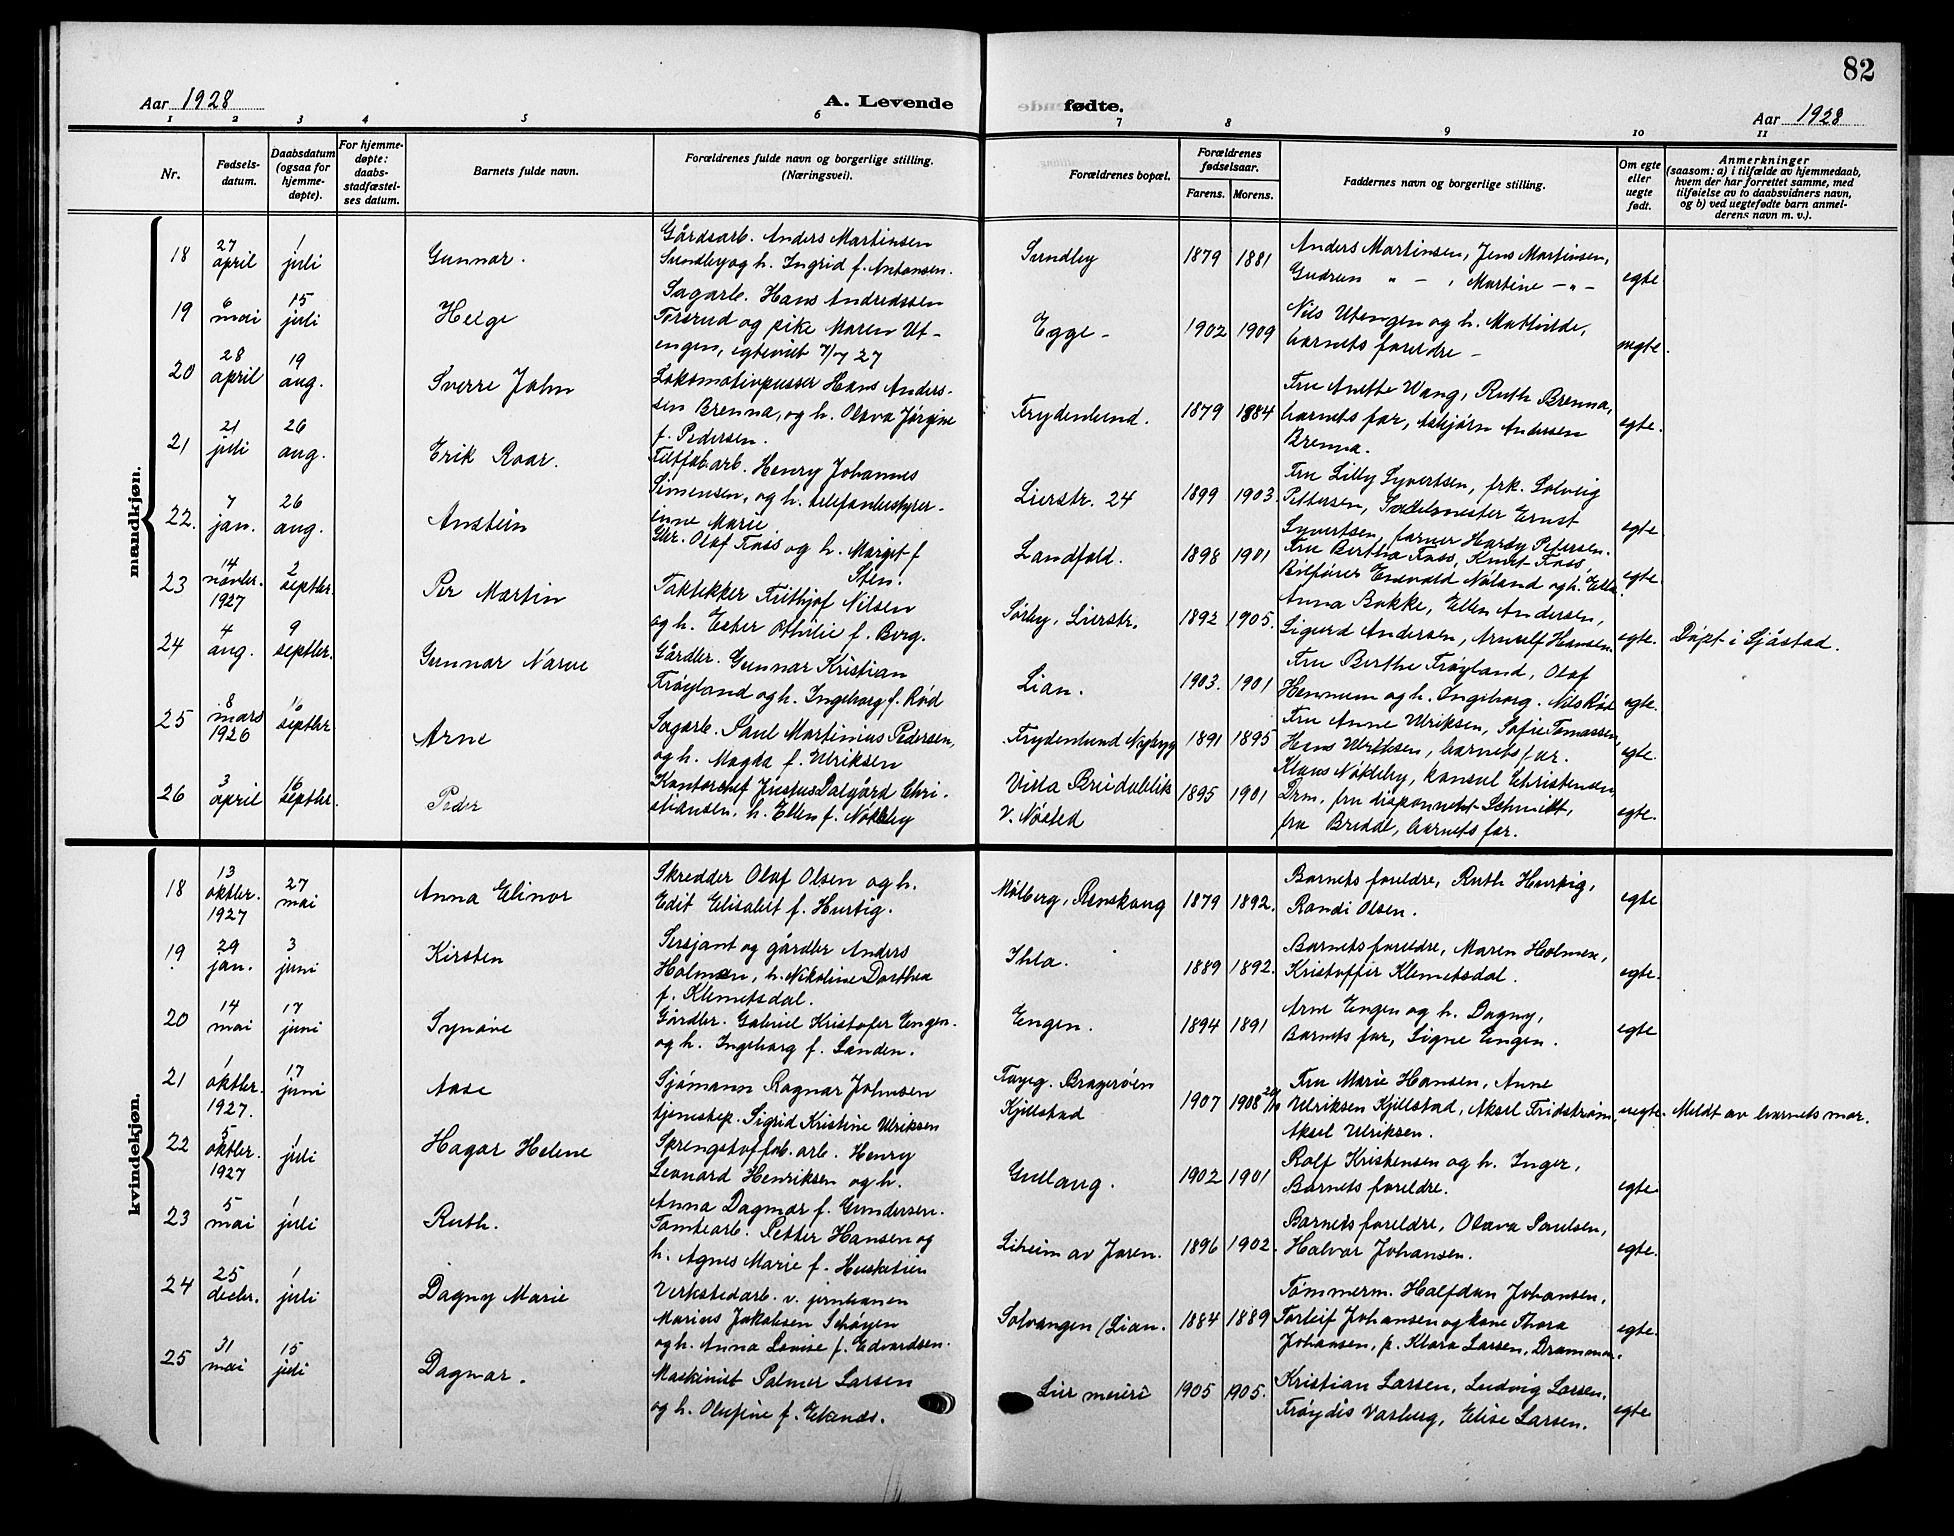 82
Aar 1928
A. Levende fødte.
Aar 1928
1 2 3 4 5 6 7 8 9 10 11
Nr.
Fødsels-
datum.
Daabsdatum
(ogsaa for
hjemme-
døpte).
For hjemme-
døpte:
daabs-
stadfæstel-
ses datum.
Barnets fulde navn.
Forældrenes fulde navn og borgerlige stilling.
(Næringsvei).
Forældrenes bopæl.
Forældrenes
fødselsaar.
Farens. Morens.
Faddernes navn og borgerlige stilling.
Om egte
eller
uegte
født.
Anmerkninger
(saasom: a) i tilfælde av hjemmedaab,
hvem der har forrettet samme, med
tilføielse av to daabsvidners navn,
og b) ved uegtefødte barn anmel-
derens navn m. v.).
mandkjøn.
18 27 april 1 juli Gunnar.
Gårdsarb. Anders Martinsen
Sundby og h. Ingrid f. Antonsen.
Sundby 1879 1881
Anders Martinsen, Jens Martinsen,
Gudrun " - , Martine - " -
egte
19 6 mai 15 juli Helge
Sagarb. Hans Andreassen
Torsrud og pike Maren Ut-
engen, egteviet 7/7 27
Egge - 1902 1909
Nils Utengen og h. Mathilde,
barnets foreldre -
uegte.
20 28 april 19 aug. Sverre John
Lokomotivpusser Hans Anders-
sen Brenna, og h. Olava Jørgine
f. Pedersen.
Frydenlund. 1879 1884
Fru Anette Wang, Ruth Brenna,
barnets far, Asbjørn Andersen
Brenna.
egte.
21 21 juli 26 aug. Erik Roar.
Filtfab. arb. Henry Johannes
Simensen, og h. telefonbestyrer-
inne Marie
Lierstr. 24 1899 1903.
Fru Lilly Syvertsen, frk. Solveig
Pettersen, Sadelmester Ernst
Syvertsen, farver Hardy Petersen.
egte
22. 7 jan. 26 aug. Anstein
Olaf Foss og h. Margit f
Sten.
Landfald. 1898 1901
Fru Bertha Foss, Knut Foss,
Bilfører Enevald Nøland og h. Ella.
egte.
23 14 novbr. 1927 2 septbr. Per Martin
Taktekker Frithjof Nilsen
og h. Ester Othilie f. Berg.
Sørby, Lierstr. 1892 1905.
Anna Bakke, Ellen Andersen,
Sigurd Andersen, Arnulf Hansen.
egte. Døpt i Sjåstad.
24 4 aug. 9 septbr. Gunnar Narve
Gårdbr. Gunnar Kristian
Frøyland og h. Ingeborg f. Rød
Lian. 1903. 1901
Fru Berthe Frøyland, Olaf
Hennum og h. Ingeborg. Nils Rød
egte.
25 8 mars 1926 16 septbr Arne
Sagarb. Paul Martinius Pedersen,
og h. Magda f. Ulriksen
Frydenlund Nybygg 1891 1895
Fru Anne Ulriksen, Sofie Tomassen,
Hans Ulriksen, barnets far.
egte.
26 3 april 16 septbr. Peder
Kontorchef Justus Dalgård Chri-
stiansen, h. Ellen f. Nøkleby
Villa Bridablik
v. Nøsted 1895 1901
Klaus Nøkleby, konsul Christensen
Drm, fru disponent Schmidt,
fru Bredde, barnets far.
egte.
kvindekjøn.
18 13 oktbr. 1927 27 mai Anna Elinor
Skredder Olaf Olsen og h.
Edit Elisabet f. Hurtig.
Mølberg, Renskaug 1879 1892.
Barnets foreldre, Ruth Hurtig,
Randi Olsen.
egte
19 29 jan. 3 juni Kirsten
Sersjant og gårdbr Anders
Holmen, h. Nikoline Dorthea
f. Klemetsdal.
Ihla. 1889 1892.
Barnets foreldre, Maren Holmen,
Kristoffer Klemetsdal.
egte.
20 14 mai 17 juni Synøve
Gårdbr. Gabriel Kristofer Engen.
og h. Ingeborg f. Landen.
Engen. 1894 1891
Arne Engen og h. Dagny,
Barnets far, Signe Engen.
egte
21 1 oktbr. 1927. 17 juni Aase
Sjømann Ragnar Johnsen
tjenestep. Sigrid Kristine Ulriksen
Bragerøen
Kjellstad 1907 1908
Fru Marie Hansen, Anne
Ulriksen Kjellstad, Aksel Fridstrøm,
Aksel Ulriksen.
uegte. Meldt av barnets mor.
22 5 oktbr. 1927 1 juli Hagar Helene
Sprengstoffab. arb. Henry
Leonard Henriksen og h.
Anna Dagmar f. Gundersen.
Gullaug. 1902 1901
Rolf Kristensen og h. Inger,
Barnets foreldre.
egte
23 5 mai 1 juli Ruth.
Tomtearb. Petter Hansen og
h. Agnes Marie f. Huskelien
Liheim av Joren. 1896 1902.
Barnets foreldre, Olava Paulsen,
Halvor Johansen.
egte.
24 25 decbr. 1 juli Dagny Marie
Verkstedarb. v. jernbanen
Marius Jakobsen Schøyen
og h. Anna Lovise f. Edvardsen.
Solvangen (Lian. 1884 1889
Tømmerm. Halfdan Johansen,
Torleif Johansen og kone Thora
Johansen, p. Klara Larsen, Drammen.
egte.
25 31 mai 15 juli Dagmar.
Maskinist Palmer Larsen
og h. Olufine f. Eknes.
Lier meieri 1905 1905.
Kristian Larsen, Ludvig Larsen.
Frøydis Varberg, Elise Larsen.
egte